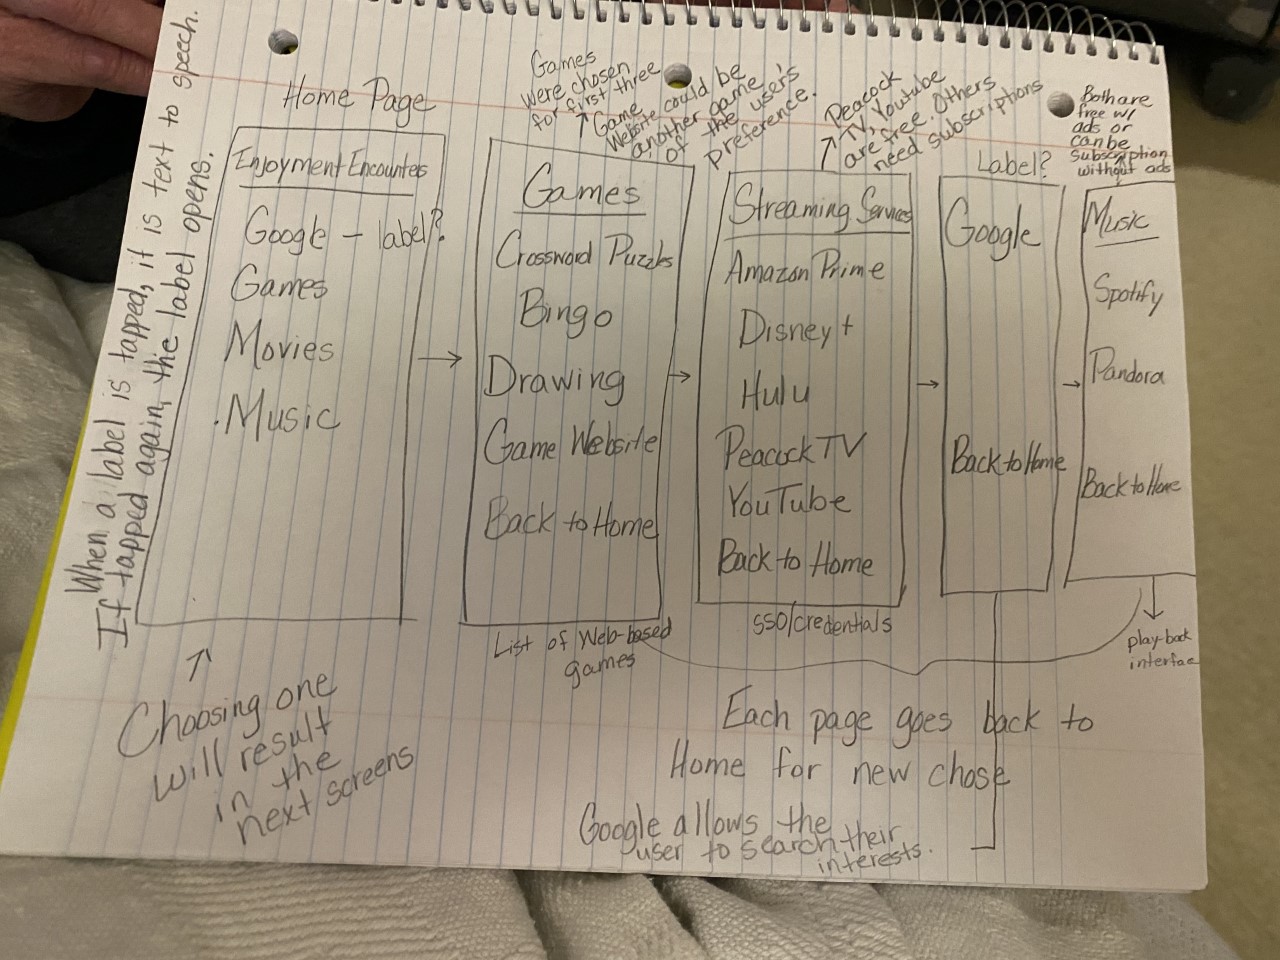 When a label is tapped, it is text to speech.
If tapped again, the label opens.
Home Page
Enjoyment Encounters
Google - label?
Games
Movies
Music
Choosing one
will result
in the
next screens
Games
were chosen
for first three
Game
Website could be
another game
of the user's
preference.
Games
Crossword Puzzles
Bingo
Drawing
Game Website
Back to Home
List of Web-based
games
Peacock
TV, Youtube
are free. Others
need subscriptions
Streaming Services
Amazon Prime
Disney+
Hulu
Peacock TV
YouTube
Back to Home
SSO/credentials
Label?
Google
Back to Home
Both are
free w/
ads or
can be
subscription
without ads
Music
Spotify
Pandora
Back to Home
play-back
interfac
Each page goes back to
Home for new chose
Google allows the
user to search their
interests.